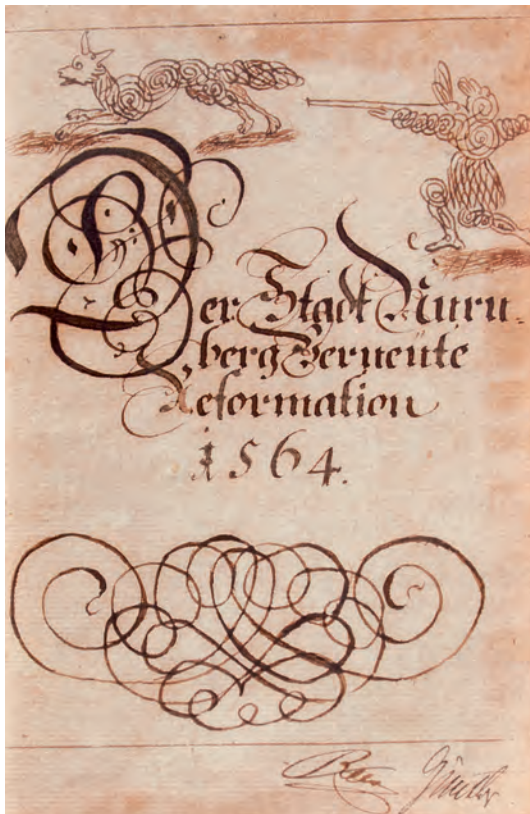 Der Stadt Nürn-
berg Verneüte
Reformation
1564.